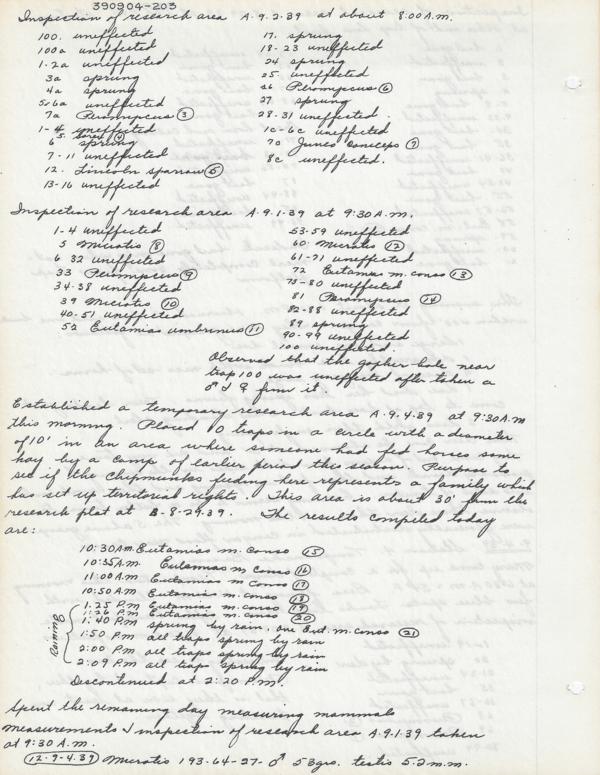 390904-203
Inspection of research area A-9-2-39 at about 8:00 A.m.
100. uneffected
100a uneffected
1-2a uneffected
3a sprung
4a sprung
5+6a uneffected
7a Peromyscus (3)
1-4 uneffected
5. Sorex (4)
6 sprung
7-11 uneffected
12. Lincoln sparrow (5)
13-16 uneffected
17. sprung
18-23 uneffected
24 sprung
25. uneffected
26 Peromyscus (6)
27 sprung
28-31 uneffected.
1c-6c uneffected
7c Junco caniceps (7)
8c uneffected.
Inspection of research area A-9-1-39 at 9:30 A.m.
1-4 uneffected
5 Microtis (8)
6 32 uneffected
33 Peromyscus (9)
34-38 uneffected
39 Microtis (10)
40-51 uneffected
52 Eutamias umbrinus (11)
53-59 uneffected
60 Microtis (12)
61-71 uneffected
72 Eutamias m. conso (13)
73-80 uneffected
81 Peromyscus (14)
82-88 uneffected
89 sprung
90-99 uneffected
100 uneffected.
Observed that the gopher hole near
trap 100 was uneffected after taken a
♂ & ♀ from it.
Established a temporary research area A-9-4-39 at 9:30 A.m
this morning. Placed 10 traps in a circle with a diameter
of 10' in an area where someone had fed horses some
hay by a camp of earlier period this season. Purpose to
see if the Chipmunks feeding here represents a family which
has set up territorial rights. This area is about 30' from the
research plat at B-8-29-39. The results compiled today
are:
10:30 A.m. Eutamias m. conso (15)
10:35 A.m. Eutamias m conso (16)
11:00 A.m Eutamias m conso (17)
10:50 A.m Eutamias m. conso (18)
Raining
1:25 P.m Eutamias m. conso (19)
1:26 P.m Eutamias m. conso (20)
1:40 P.m sprung by rain, one Eut. m. conso (21)
1:50 P.m all traps sprung by rain
2:00 P.m all traps sprung by rain
2:09 P.m all traps sprung by rain
Discontinued at 2:20 P.m.
Spent the remaining day measuring mammals
measurements & inspection of research area A-9-1-39 taken
at 9:30 A.m.
(12-9-4-39) Microtis 193-64-27-♂ 53grs. testis 5.2 m.m.